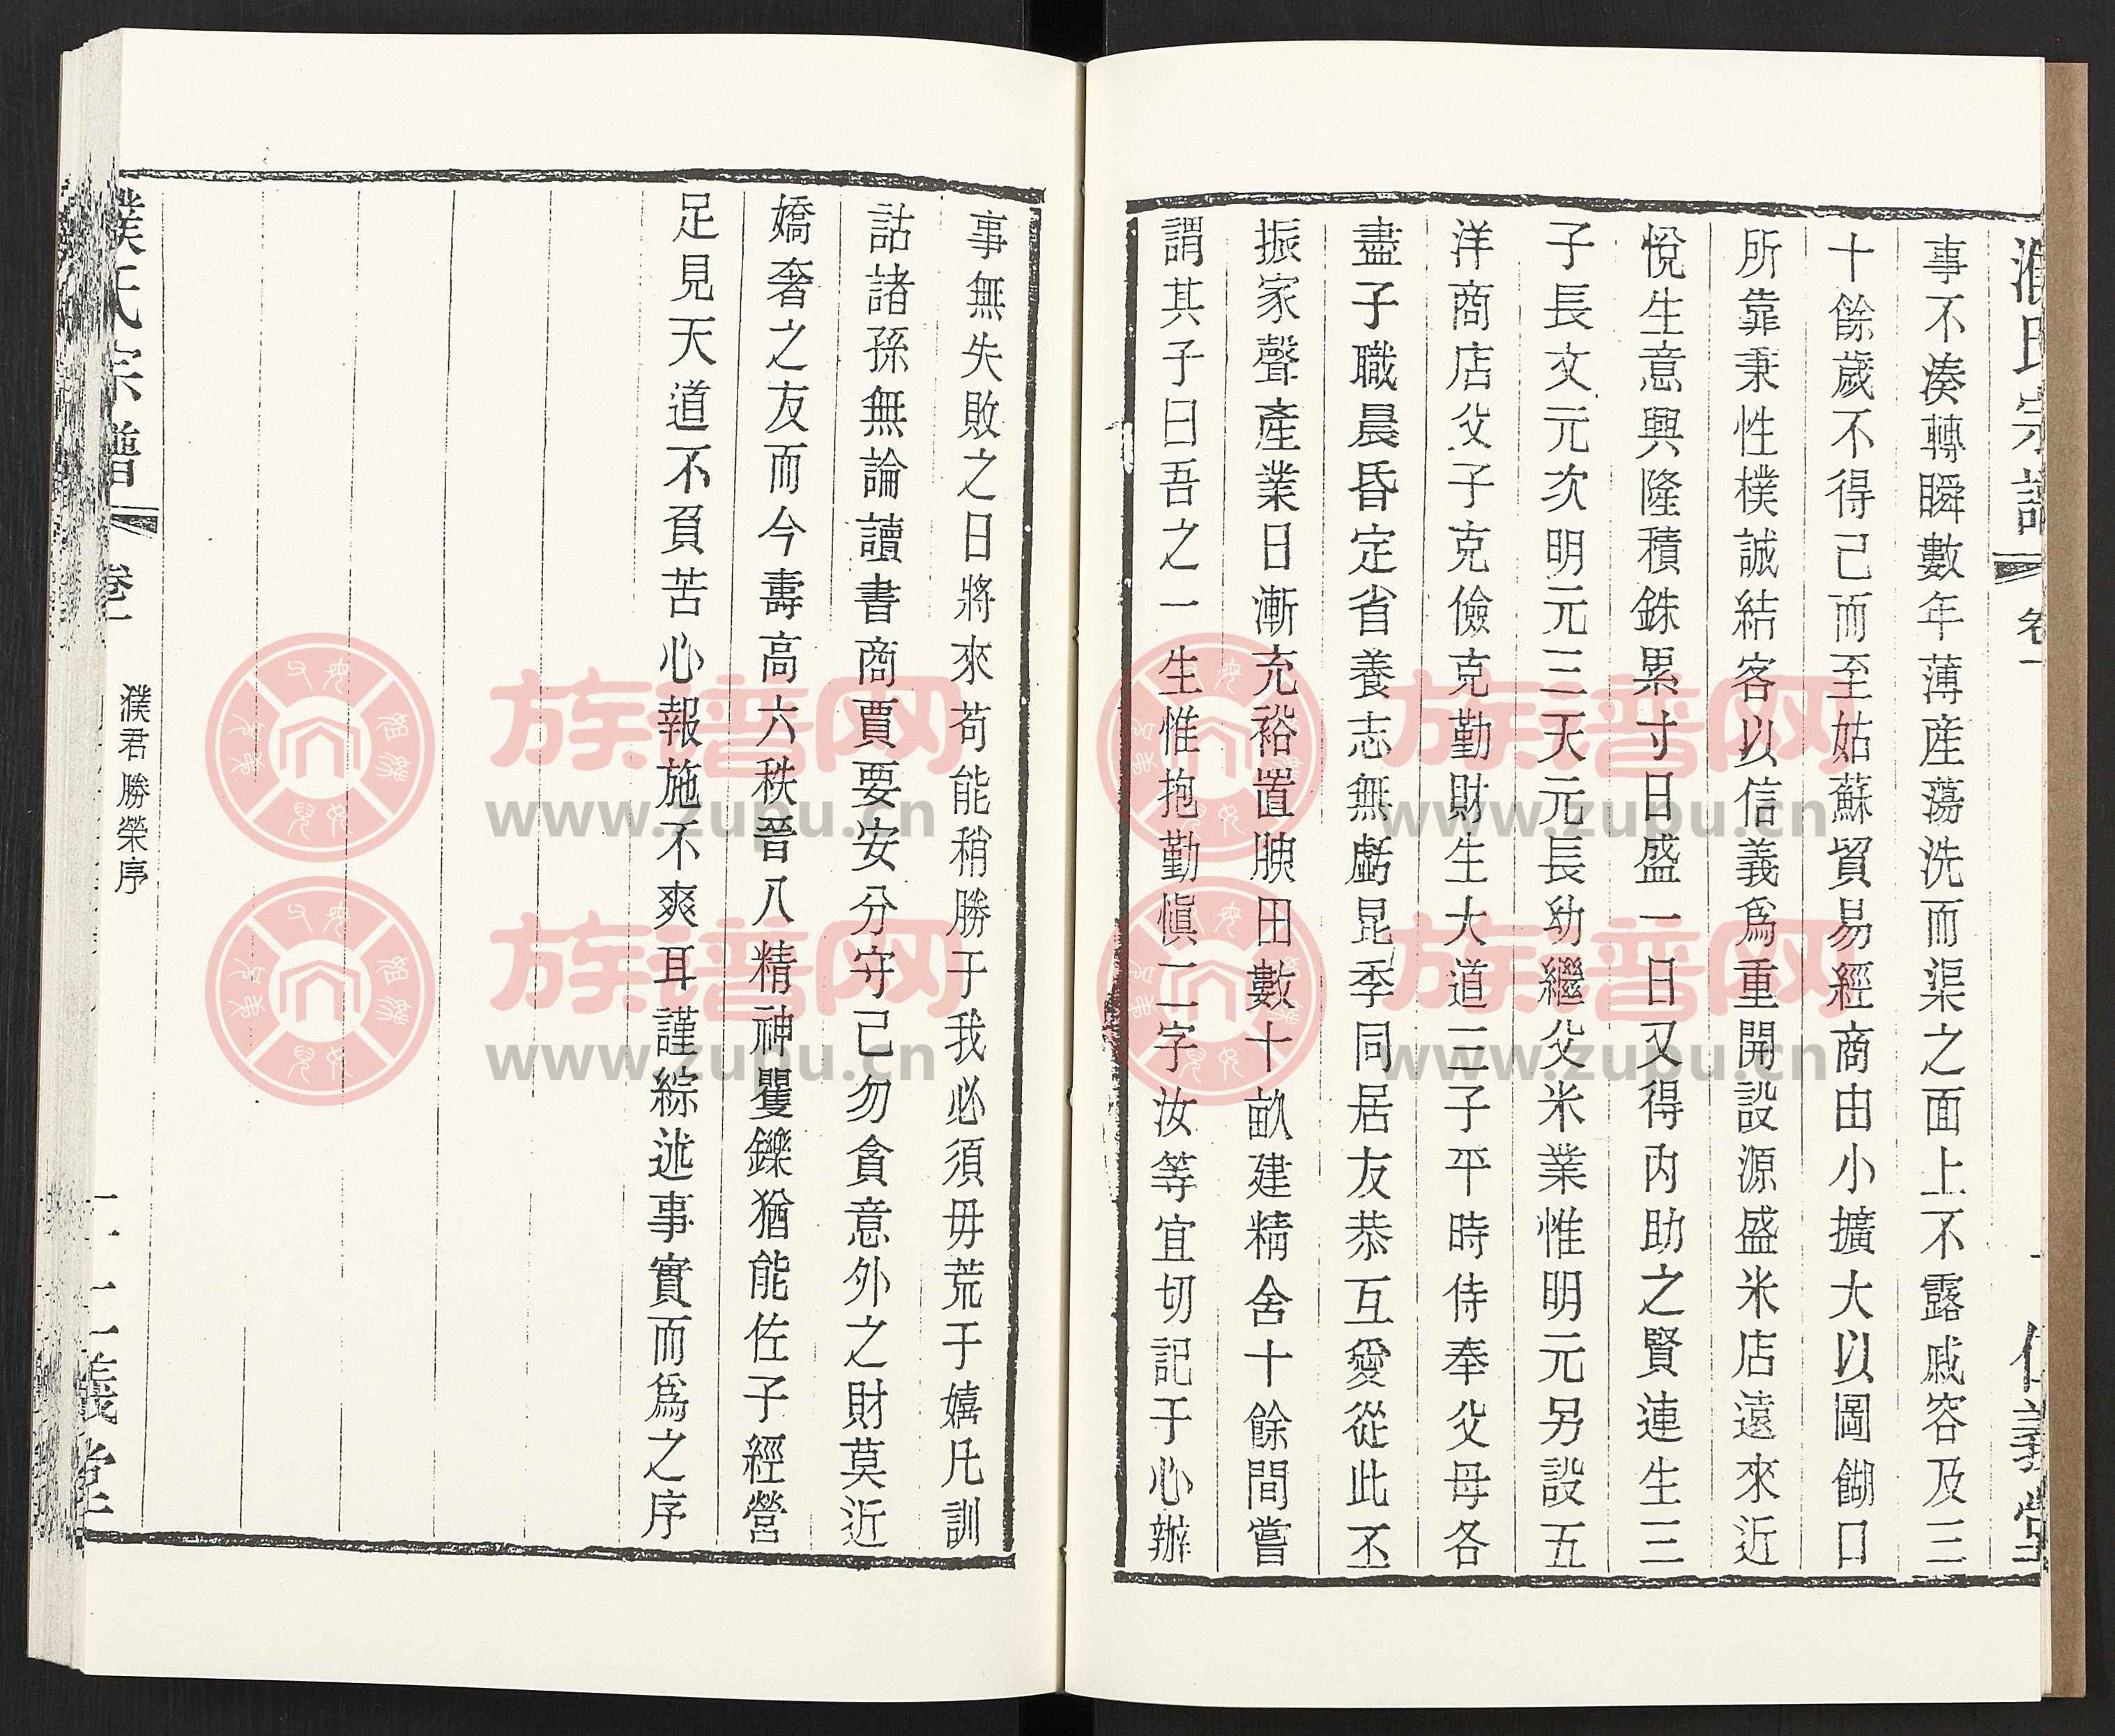 濮氏宗譜
卷一
仁義堂
事不湊轉瞬數年薄産蕩洗而渠之面上不露戚容及三
十餘歲不得己而至姑蘇貿易經商由小擴大以圖餬口
所靠秉性樸誠結客以信義爲重開設源盛米店遠來近
悅生意興隆積銖累寸日盛一日又得内助之賢連生三
子長文元次明元三天元長幼繼父米業惟明元另設五
洋商店父子克儉克勤財生大道三子平時侍奉父母各
盡子職晨昏定省養志無虧昆季同居友恭互愛從此丕
振家聲產業日漸充裕置腴田數十畝建精舍十餘間嘗
謂其子曰吾之一生惟抱勤愼二字汝等宜切記于心辦
事無失敗之日將來苟能稍勝于我必須毋荒于嬉凡訓
詁諸孫無論讀書商賈要安分守己勿貪意外之財莫近
嬌奢之友而今壽高六秩晉八精神矍鑠猶能佐子經營
足見天道不負苦心報施不爽耳謹綜述事實而爲之序
濮氏宗譜
卷一
濮君勝榮序
義堂
族譜网
www.zupu.cn
族譜网
www.zupu.cn
族譜网
www.zupu.cn
族譜网
www.zupu.cn